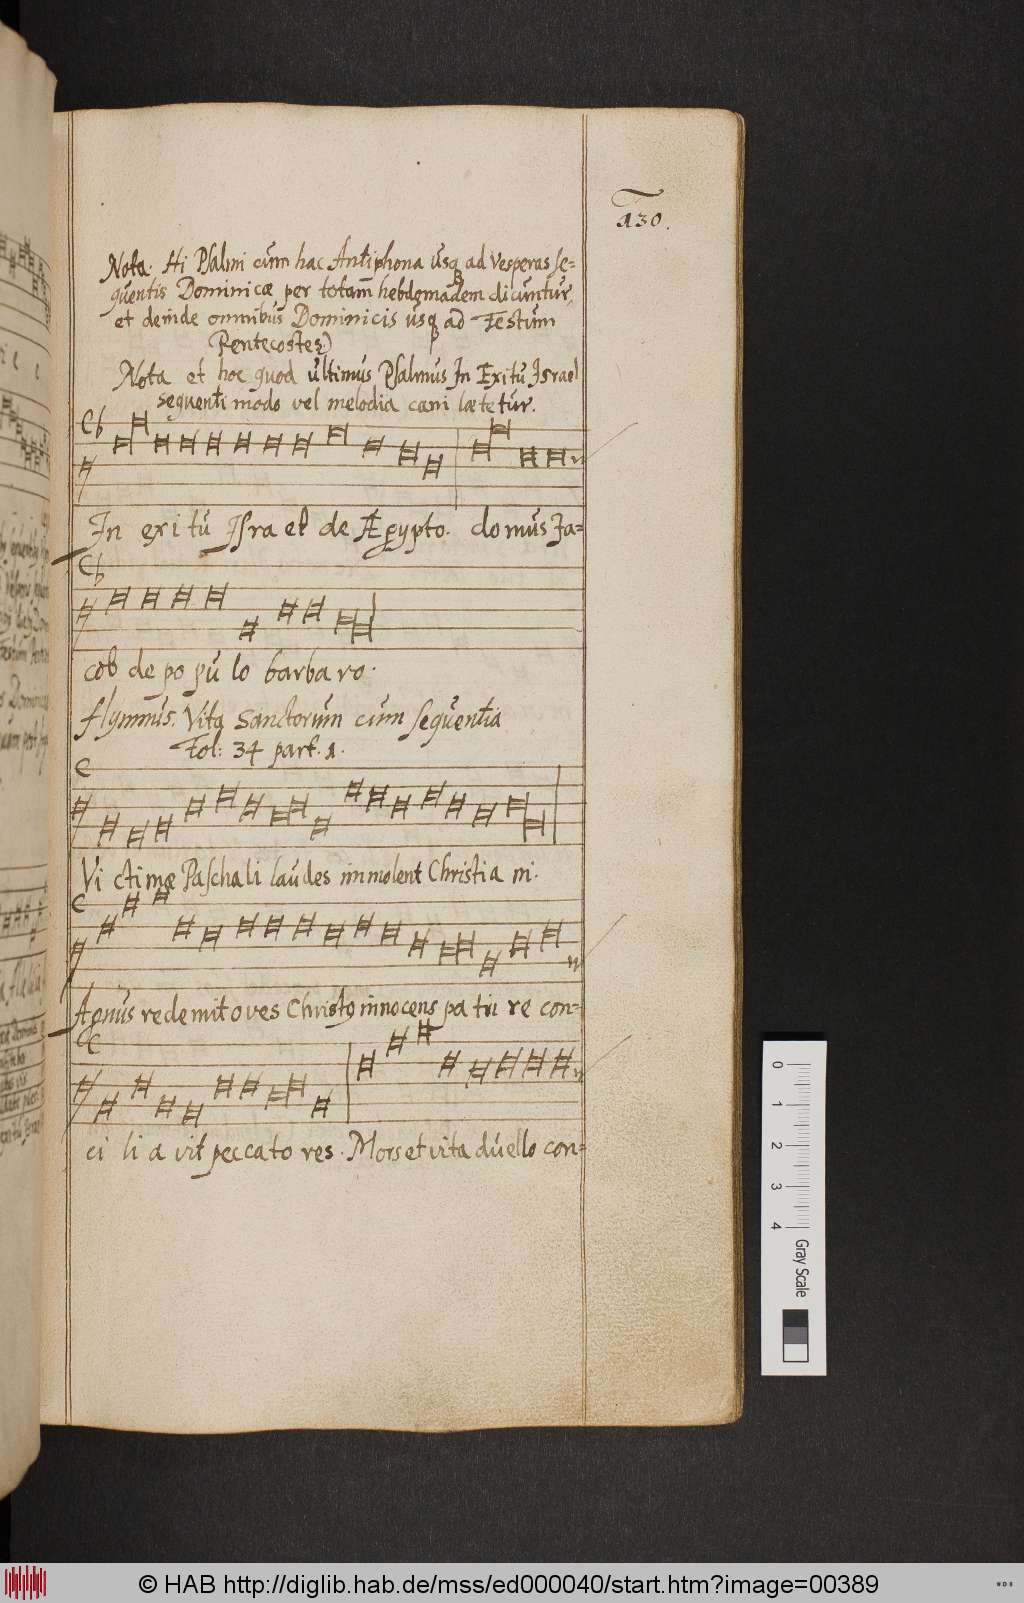 130.
Nota. Hi Psalmi cum hac Antiphona usq ad Vesperas se=
quentis Dominicæ per totam hebdomadem dicuntur,
et deinde omnibus Dominicis usq ad Festum
Pentecostes)
Nota et hoc quod ultimus Psalmus In Exitu Israel
sequenti modo vel melodia cani lætetur.
In exi tu Isra el de Ægypto. domus Ja=
cob de po pu lo barba ro.
Hymnus. Vita Sanctorum cum sequentia
Fol: 34 part. 1.
Vi ctimæ Paschali laudes immolent Christia ni.
Agnus redemit oves Christus innocens pa tri re con=
ci li a vit peccato res. Mors et vita duello con=
0
1
2
3
4
Gray Scale
© HAB http://diglib.hab.de/mss/ed000040/start.htm?image=00389